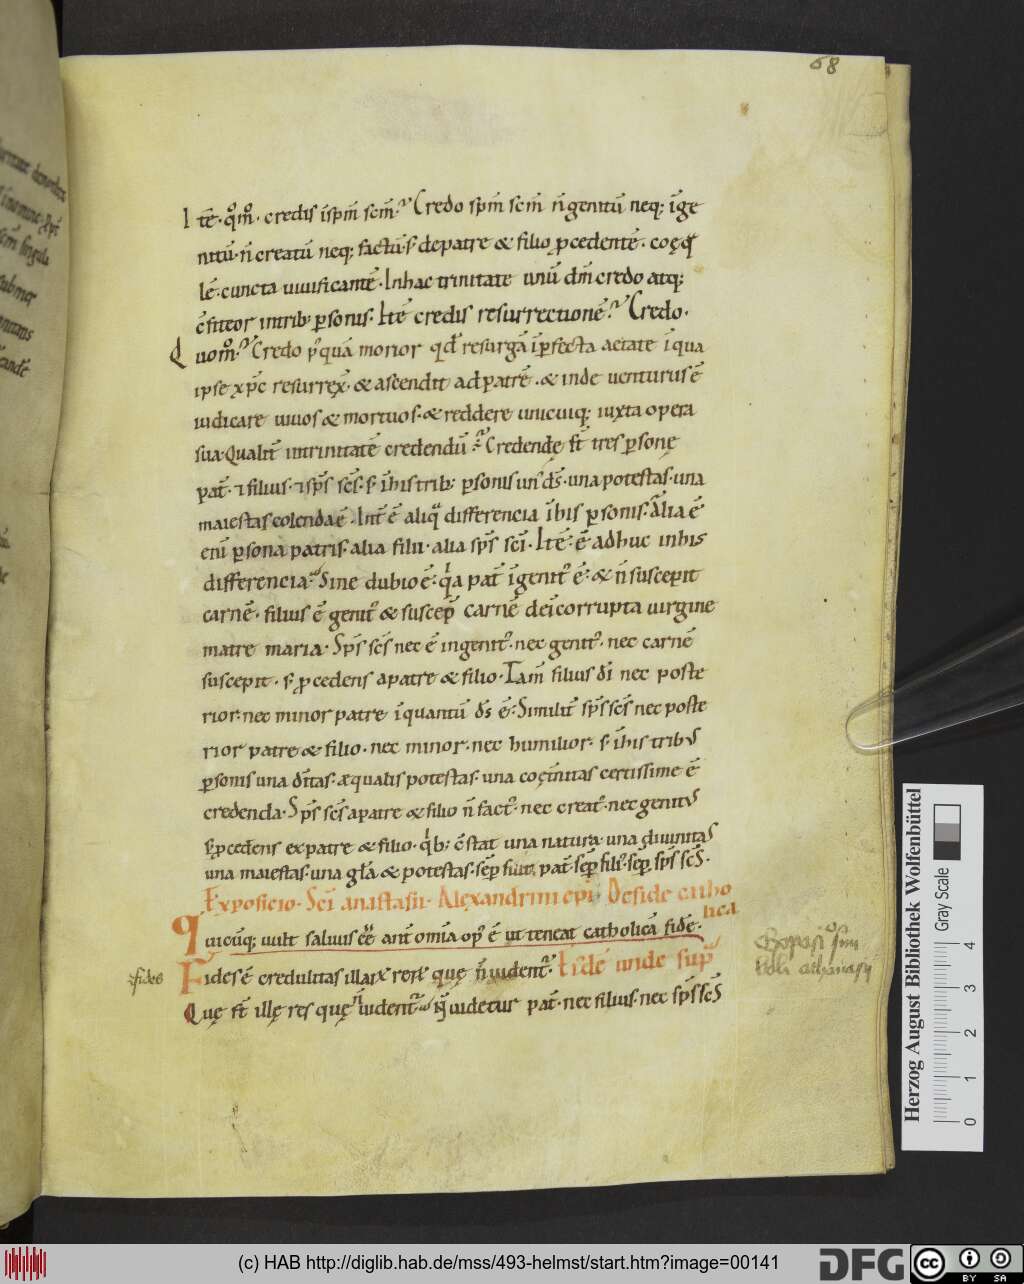 68
Itē · qͦm̄ · credis ī spm̄ scm̄ ? Credo spm̄ scm̄ n̄ genitū neq; īge
nitū · n̄ creatū neq; factū · s̄ de patre & filio ꝓcedentē · coęq̄
lē · cuncta uiuificantē · In hac trinitate unū dm̄ credo atq;
cf̄iteor in trib; ꝑsonis · Itē credis resurrectionē ? Credo ·
Quom̄ ? Credo p᷒quā morior qd̄ resurgā ī ꝑfecta aetate ī qua
ipse xp̄c resurrex̄ · & ascendit ad patrē · & inde uenturus ē
iudicare uiuos & mortuos · & reddere unicuiq; iuxta opera
sua · Qualit̄ in trinitatē credendū ē ? Credendę st̄ tres ꝑsonę
pat̄ · ⁊ filius · ⁊ sp̄s sc̄s · s̄ ī his trib; ꝑsonis un᷒ ds̄ · una potestas · una
maiestas colenda ē · Int̄ ē aliq̄ differencia ī his ꝑsonis · Alia ē
enī ꝑsona patris · alia filii · alia sp̄s sc̄i · Itē · ē adhuc in his
differencia ? Sine dubio ē · qa pat̄ īgenit᷒ ē · & n̄ suscepit
carnē · filius ē genit᷒ & suscep̄ carnē de īcorrupta uirgine
matre maria · Sp̄s sc̄s nec ē ingenit᷒ · nec genit᷒ · nec carnē
suscepit · s̄ ꝓcedens a patre & filio · Tam̄ filius dī nec poste
rior · nec minor patre ī quantū ds̄ ē · Similit̄ sp̄s sc̄s nec poste
rior patre & filio · nec minor · nec humilior · s̄ ī his tribus
ꝑsonis una dn̄itas · æqualis potestas · una coęt̄nitas certissime ē
credenda · Sp̄s sc̄s a patre & filio n̄ fact᷒ · nec creat᷒ · nec genitus
s̄ ꝓcedens ex patre & filio · qb; cs̄tat una natura · una diuinitas
una maiestas · una glā & potestas · sep̄ fuit pat̄ · sep̄ fili᷒ · sep̄ sp̄s sc̄s ·
Exposicio · Sc̄i anastasii · Alexandrini ep̄i De fide catho
lica
Quicūq; uult saluus ēē ant̄ omīa op᷒ ē ut teneat catholicā fidē ·
fides
Fides ē credulitas illarū rerū quę n̄ uident̄ · Et fidē unde sup̄
Quę st̄ illę res quę n̄ uident̄ ? n̄ uidetur pat̄ · nec filius · nec sp̄s sc̄s
Expositio sim
boli athanasij
Herzog August Bibliothek Wolfenbüttel
Gray Scale
0 1 2 3 4
(c) HAB http://diglib.hab.de/mss/493-helmst/start.htm?image=00141
DFG
cc BY SA